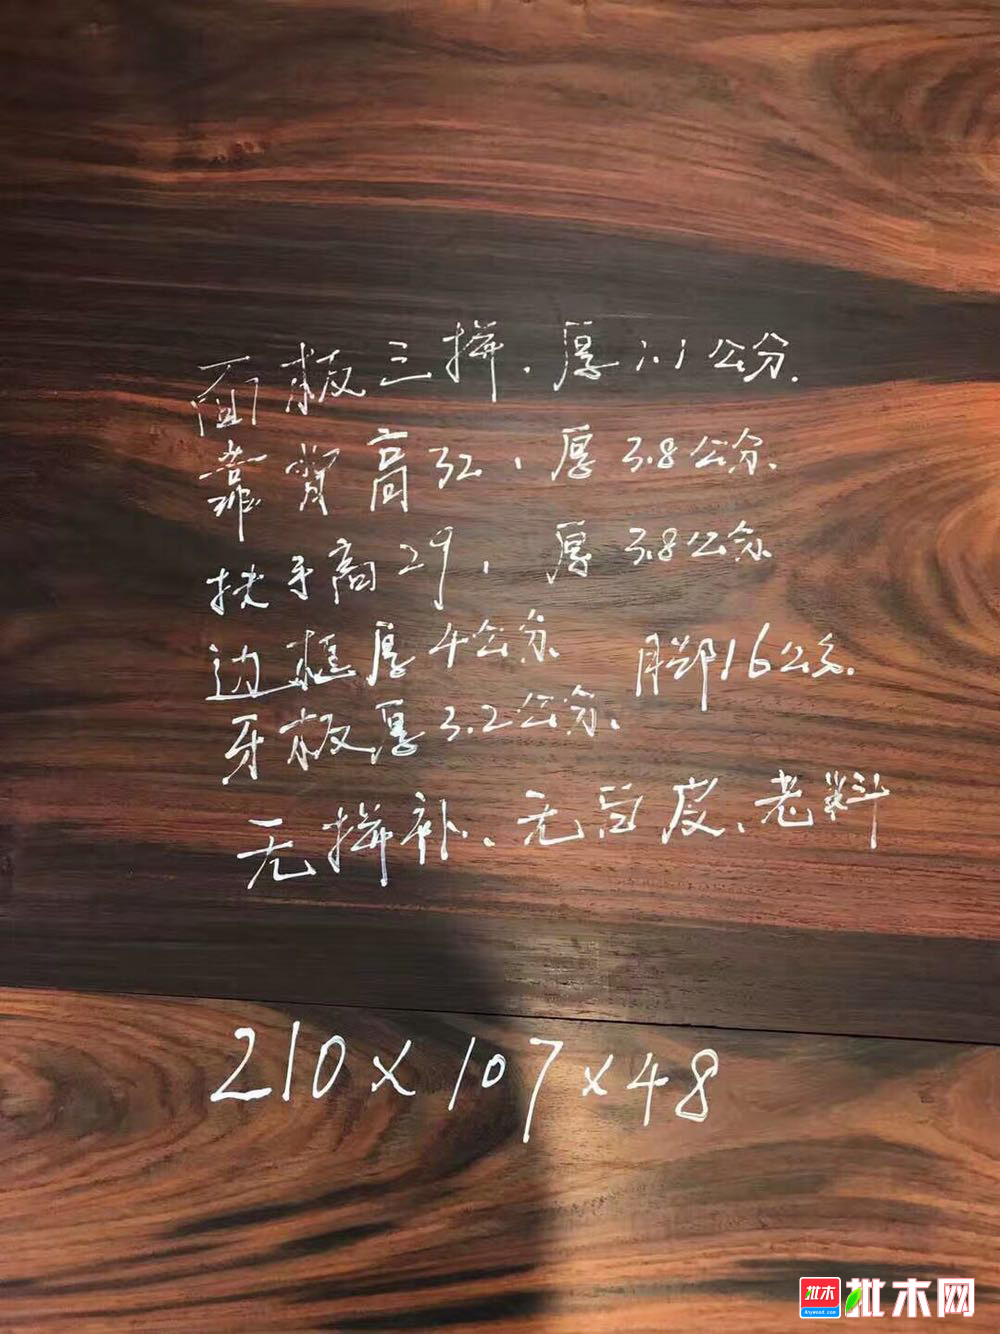 面板三拼、厚1.1公分.
靠背高32、厚3.8公分.
扶手高29、厚3.8公分.
边框厚4公分 脚16公分.
牙板厚3.2公分、
无拼补、无白皮、老料
210×107×48
批木 批木网
Anywood.com